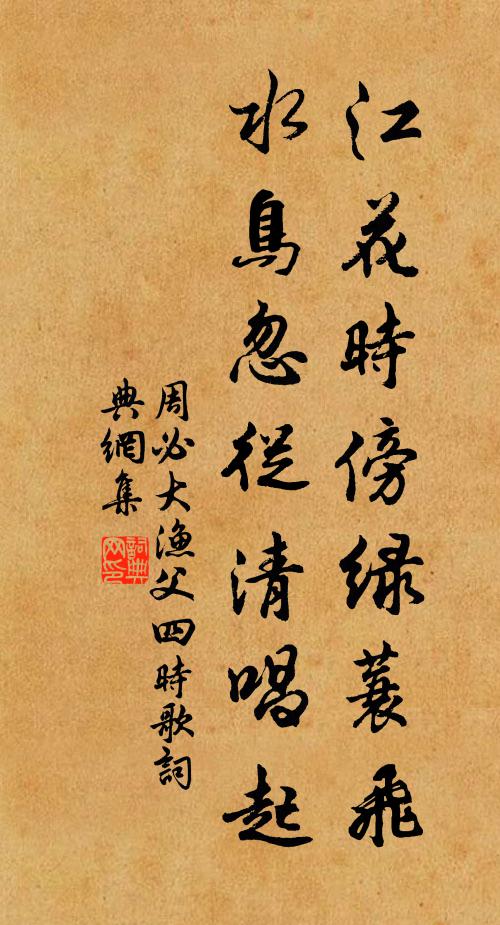 江花時傍綠蓑飛
水鳥忽從清唱起
周必大漁父四時歌詞
典網集
詞典網印